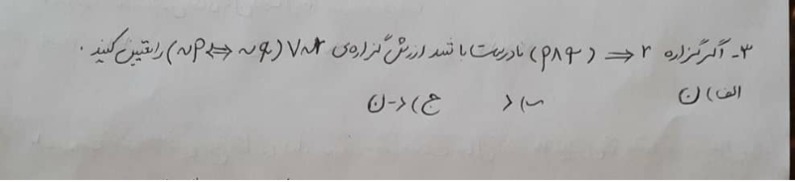 ۳- اگر گزاره (p∧q) ⇒ r نادرست باشد ارزش گزاره‌ی (~p⇔~q)∨~r را تعیین کنید.
الف) ن ب) د ج) د-ن